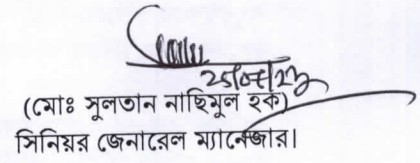 (মোঃ সুলতান নাছিমুল হক)
সিনিয়র জেনারেল ম্যানেজার।